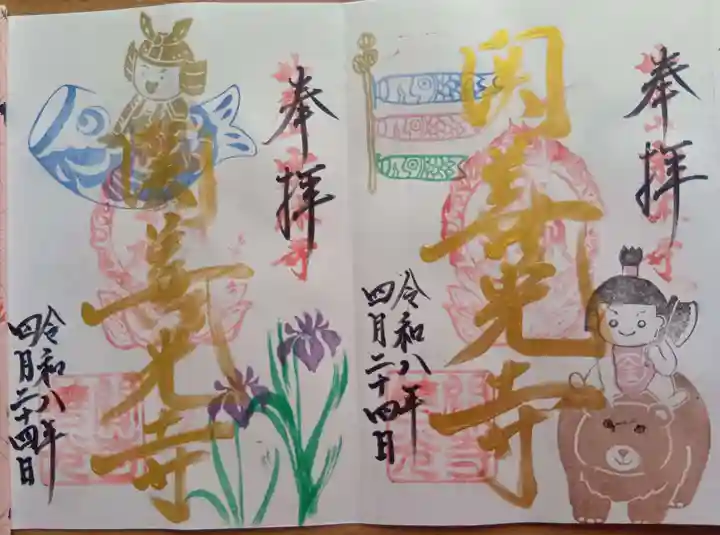 奉拝
関善光寺
令和八年
四月二十四日
奉拝
関善光寺
令和八年
四月二十四日